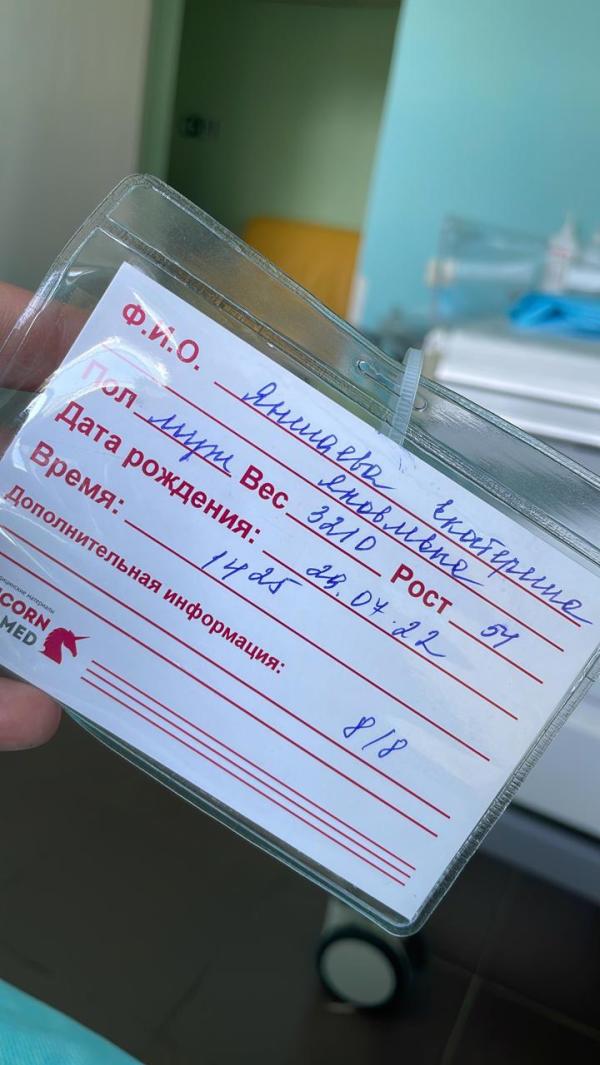 Ф.И.О. Яншаева Екатерина
Яковлевна
Пол муж Вес 3210 Рост 51
Дата рождения: 29.04.22
Время: 1425
Дополнительная информация:
8/8
ICORN
MED